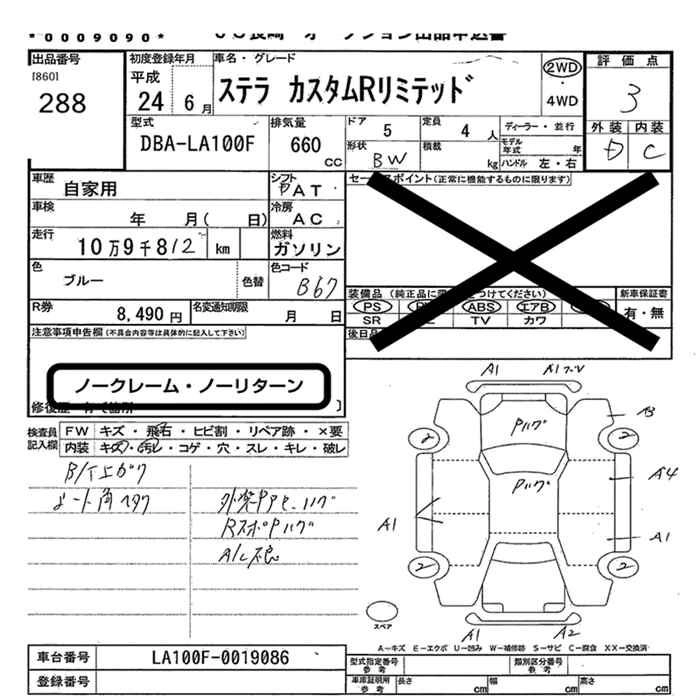 *0009090*
出品番号
[860]
288
初度登録年月
平成
24 6月
車名・グレード
ステラ カスタムRリミテッド
2WD
・
4WD
評価点
3
外装 内装
D C
型式
DBA-LA100F
排気量
660
cc
ドア 5
定員 4人
ディーラー・並行
形状 BW
積載 kg
モデル年式 年
ハンドル 左・右
車歴
自家用
シフト
PAT
車検
年 月( 日)
冷房
AC
走行
10万9千812 km
燃料
ガソリン
色
ブルー
色替
色コード
B67
R券
8,490円
名変通知期限
月 日
セールスポイント(正常に機能するものに限ります)
装備品
PS ABS エアB
SR TV カワ
新車保証書
有・無
注意事項申告欄(不具合内容等は具体的に記入して下さい)
ノークレーム・ノーリターン
検査員記入欄
FW キズ・飛石・ヒビ割・リペア跡・×要
内装 キズ・汚レ・コゲ・穴・スレ・キレ・破レ
シート角ヘタク
A/C不良
A1
Pハゲ
B
2 2
Pハゲ
A4
A1
A1
2 2
A1 A2
スペア
A-キズ E-エクボ U-凹み W-補修跡 S-サビ C-腐食 XX-交換済
車台番号
LA100F-0019086
登録番号
型式指定番号
参考
類別区分番号
参考
車庫証明所
参考
長さ cm
幅 cm
高さ cm